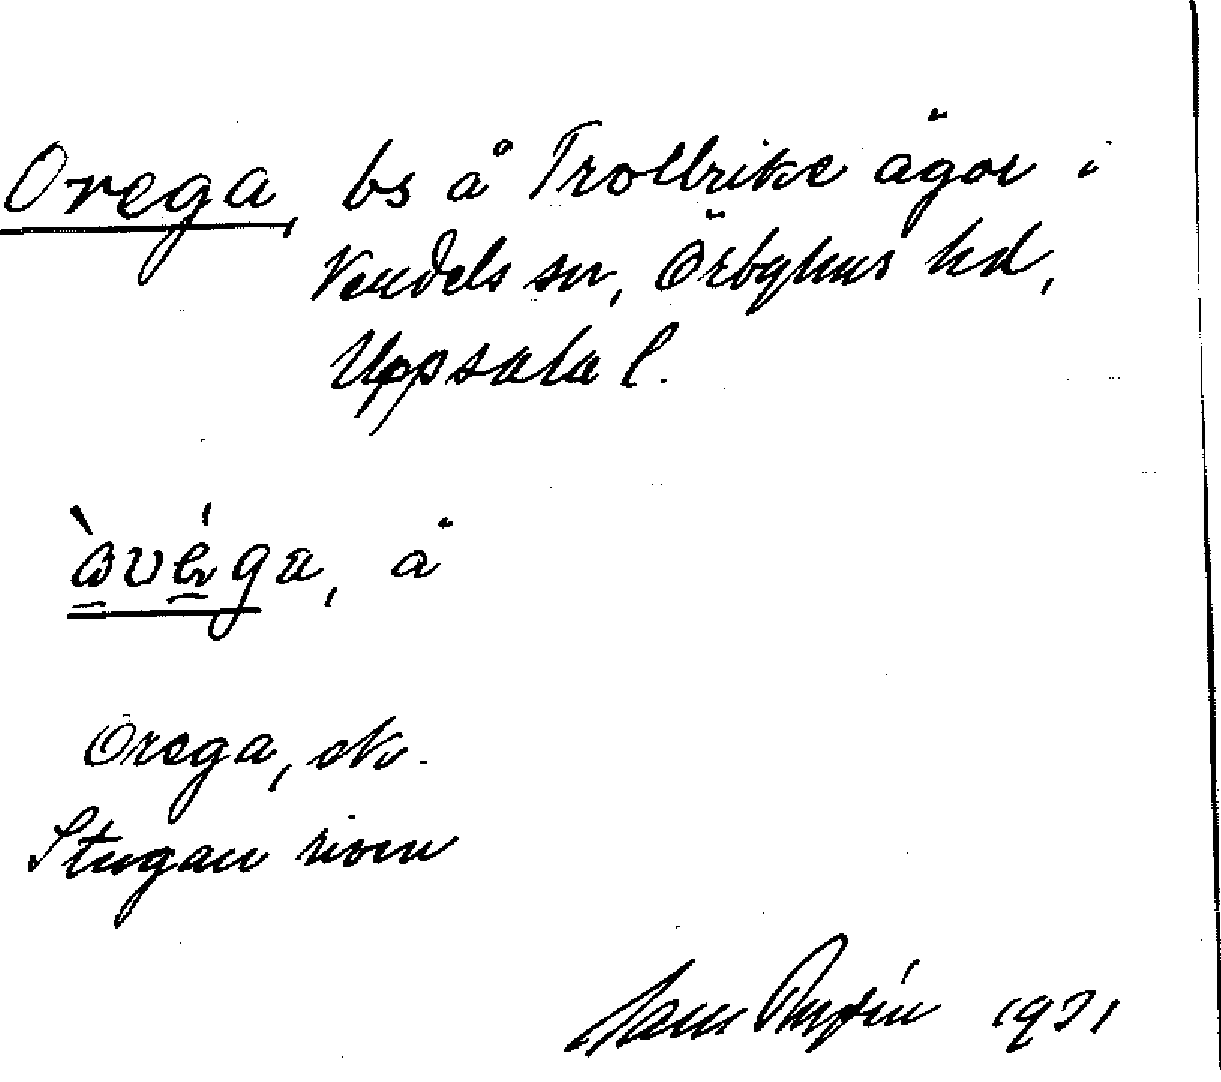 Orega, bs å Trollrike ägor i
Vendels sn, Örbyhus hd,
Uppsala l.
å
Orega, ek.
Stugan riven
1931